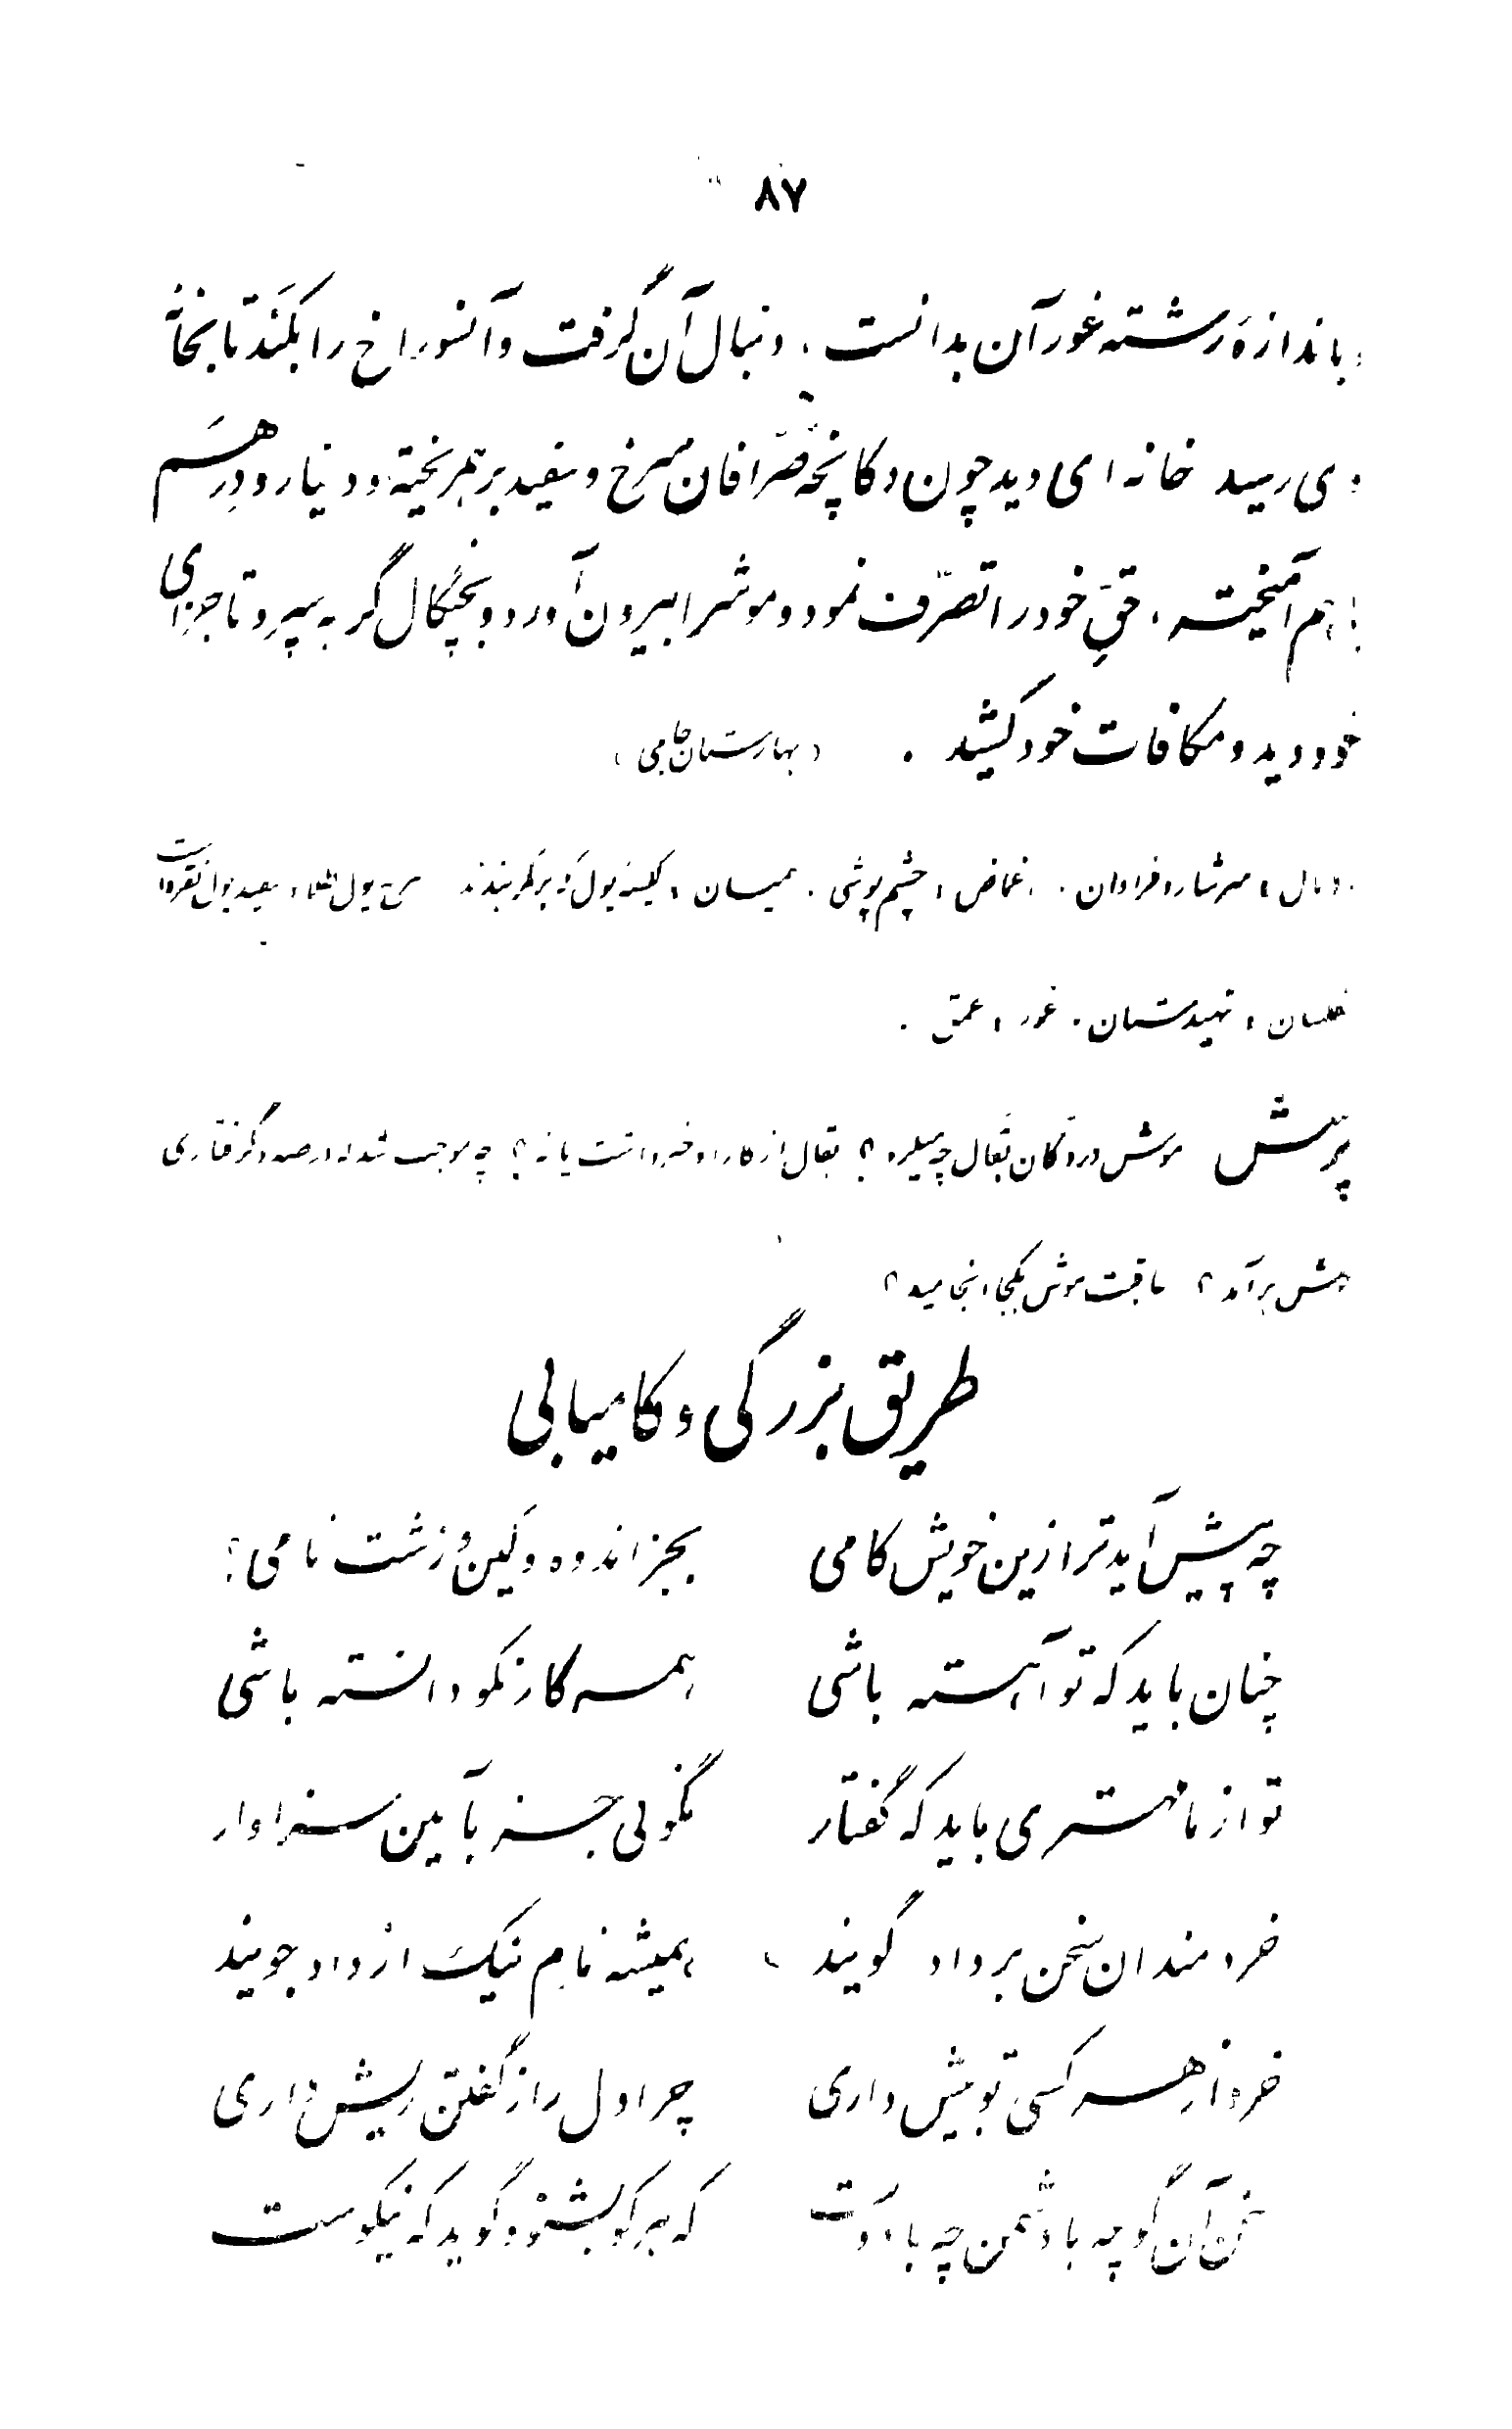 ۸۷
باندازهٔ رشته غور آن بدانست ، دنبال آن گرفت و آنسوراخ را بکَند تا بخانهٔ
وی رسید خانه ای دید چون دکانچهٔ صرّافان سرخ و سفید بر هم ریخته و دینار و دِرهَم
با هم آمیخته ، حقِّ خود را تصرّف نمود و موش را بیرون آورد و بچنگال گربه سپرد تا جزای
خود دید و مکافات خود کشید . (بهارستان جامی)
مال ، سرشار و فراوان . اغماض ، چشم پوشی . همیان ، کیسهٔ پول که بر کمر بندند سرخ پول طلا ، سفید پول نقره است
مفلسان ، تهیدستان . غور ، عمق .
پرسش موش در دکان بقّال چه میکرد ؟ بقال از کار او خبر داشت یا نه ؟ چه موجب شد که در صدد گرفتاری
موش برآمد ؟ عاقبت موش بکجا انجامید ؟
طریق بزرگی و کامیابی
چه پیش آید ترا زین خویش کامی بجز اندوه و کین و زشت نامی ؟
چنان باید که تو آهسته باشی همه کار نکو دانسته باشی
تو از ما مهتری باید که گفتار نگوئی جز بآیین سزاوار
خردمندان سخن بر داد گویند همیشه نامِ نیک از داد جویند
خرد از هر کسی تو بیش داری چرا دل را ز گفتن ریش داری
سخن آن گو چه با دشمن چه با دوست که هر کو بشنود گوید که نیکوست